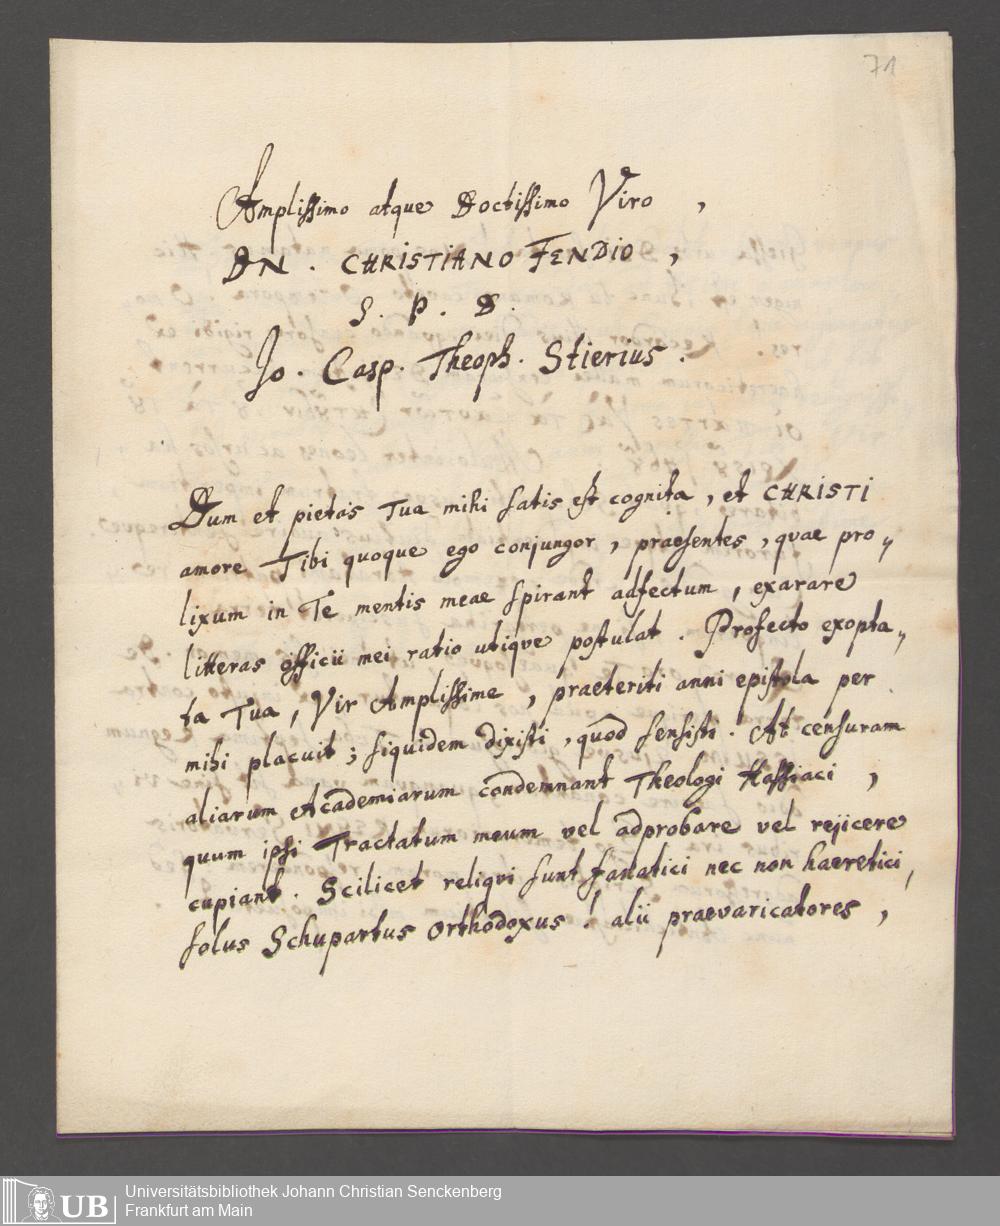 71
Amplissimo atque Doctissimo Viro,
DN. CHRISTIANO FENDIO,
S. P. D.
Jo. Casp. Theoph. Stierius.
Dum et pietas Tua mihi satis est cognita, et CHRISTI
amore Tibi quoque ego conjungor, praesentes, quae pro„
lixum in Te mentis meae spirant adfectum, exarare
litteras officii mei ratio utique postulat. Profecto exopta„
ta Tua, Vir Amplissime, praeteriti anni epistola per
mihi placuit; siquidem dixisti, quod sensisti. At censuram
aliarum Academiarum condemnant Theologi Hassiaci,
quum ipsi Tractatum meum vel adprobare vel rejicere
cupiant. Scilicet reliqui sunt fanatici nec non haeretici,
solus Schupartus orthodoxus! alii praevaricatores,
UB
Universitätsbibliothek Johann Christian Senckenberg
Frankfurt am Main